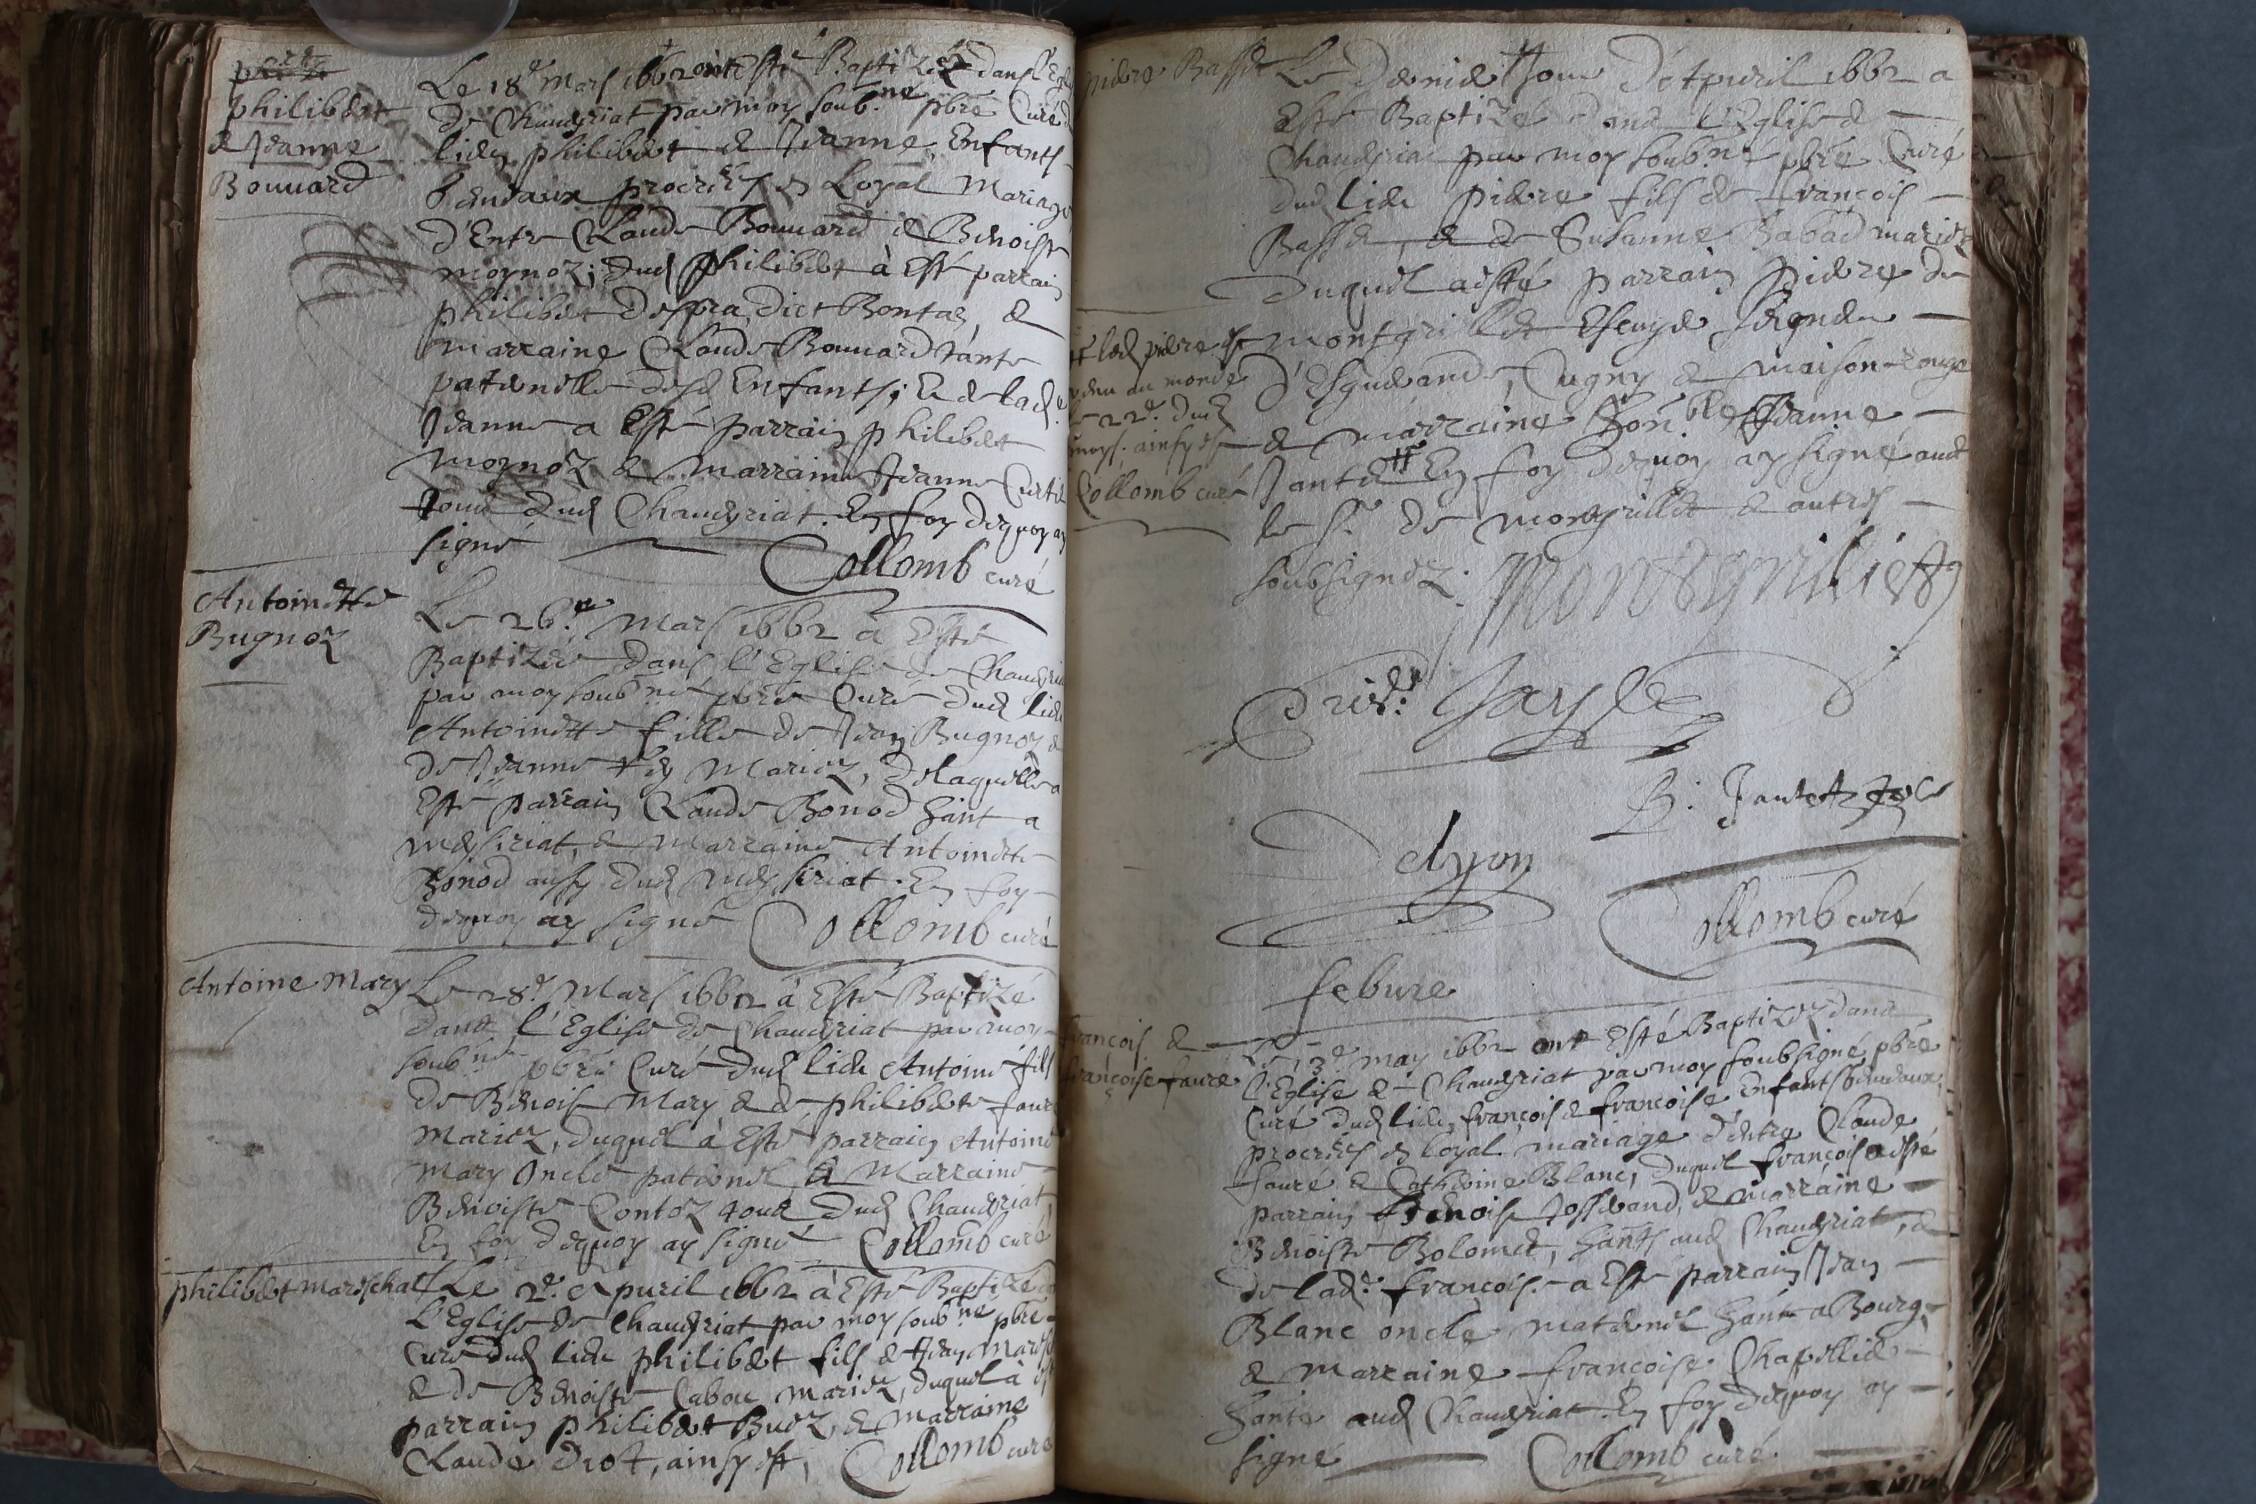 Philibert
& Jeanne
Bouuard
Le 18e. Mars 1662 ont esté Baptizéz dans l'Egl
de Chaueyriat par moy soub.né pbre Curé d
lieu philibert & Jeanne, Enfants
bendaux procréés en Loyal Mariage
d'Entre Claude Bouuard & Benoiste
moynoz; dud philibert à Esté parrain
philibert Despra dict Bontaz, &
marraine Claude Bouuard tante
paternelle desd Enfants; & de lad.e
Jeanne a Esté parrain philibert
moynoz & marraine Jeanne
tous dud Chaueyriat. En foy dequoy ay
signé
Collomb curé
Antoinette
Bugnoz
Le 26.e Mars 1662 à Esté
Baptizée dans l'Eglise de Chaueyria
par moy soub.né pbre Curé dud lieu
Antoinette fille de Jean Bugnoz &
de Jeanne mariez, de laquelle a
Esté parrain Claude Bonod hant a
mesziriat, & marraine Antoinette
Bonod aussy dud meziriat. En foy
dequoy ay signé Collomb curé
Antoine Mary
Le 28.e Mars 1662 à Esté Baptizé
dans l'Eglise de Chaueyriat par moy
soub.né pbre Curé dud lieu Antoine fils
de Benoist Mary & de philiberte faure
mariez, duquel à Esté parrain Antoine
Mary Oncle paternel & Marraine
Benoiste Contoz tous dud Chaueyriat,
En foy dequoy ay signé Collomb curé
philibert mareschal
Le 2.e Apuril 1662 à Esté Baptizé
L'Eglise de Chaueyriat par moy soub.né pbre
Curé dud lieu philibert fils de Jean Mares
& de Benoiste Cabou mariez, duquel à esté
parrain philibert Buez, & marraine
Claude Drot, ainsy est, Collomb curé
pierre Basset
Le dernier Jour d'Apuril 1662 a
Esté Baptizé dans l'Eglise de
Chaueyriat par moy soub.né pbre Curé
dud lieu pierre fils de françois
Basset, & de Susanne mariez
duquel a esté parrain pierre de
montgrillet Escuyer seigneur
d'Esguerande, Cugny & maison-rouge
& marraine hon.ble Jeanne
Jantet # En foy dequoy ay signé auec
le sr. de montgrillet & autres
soubsignez.
# led pierre est
venu au monde
le 22.e dud
moys. ainsy est
Collomb curé
Montgrillet
Jayle
B: Jantet
Delyon
Collomb curé
febure
françois &
françoise faure
Le 3.e may 1662 ont Esté Baptizez dans
l'Eglise de Chaueyriat par moy soubsigné pbre
Curé dud lieu, françois & françoise Enfants bendaux,
procréés en loyal mariage d'Entre Claude
faure & Catherine Blanc, duquel françois a esté
parrain Benoist Josserand, & marraine
Benoiste Bolomet, hants aud Chaueyriat, &
de lad.e françoise a Esté parrain Jean
Blanc oncle maternel hant a Bourg,
& marraine françoise Chapellier
hante aud Chaueyriat. En foy dequoy ay
signé
Collomb curé.